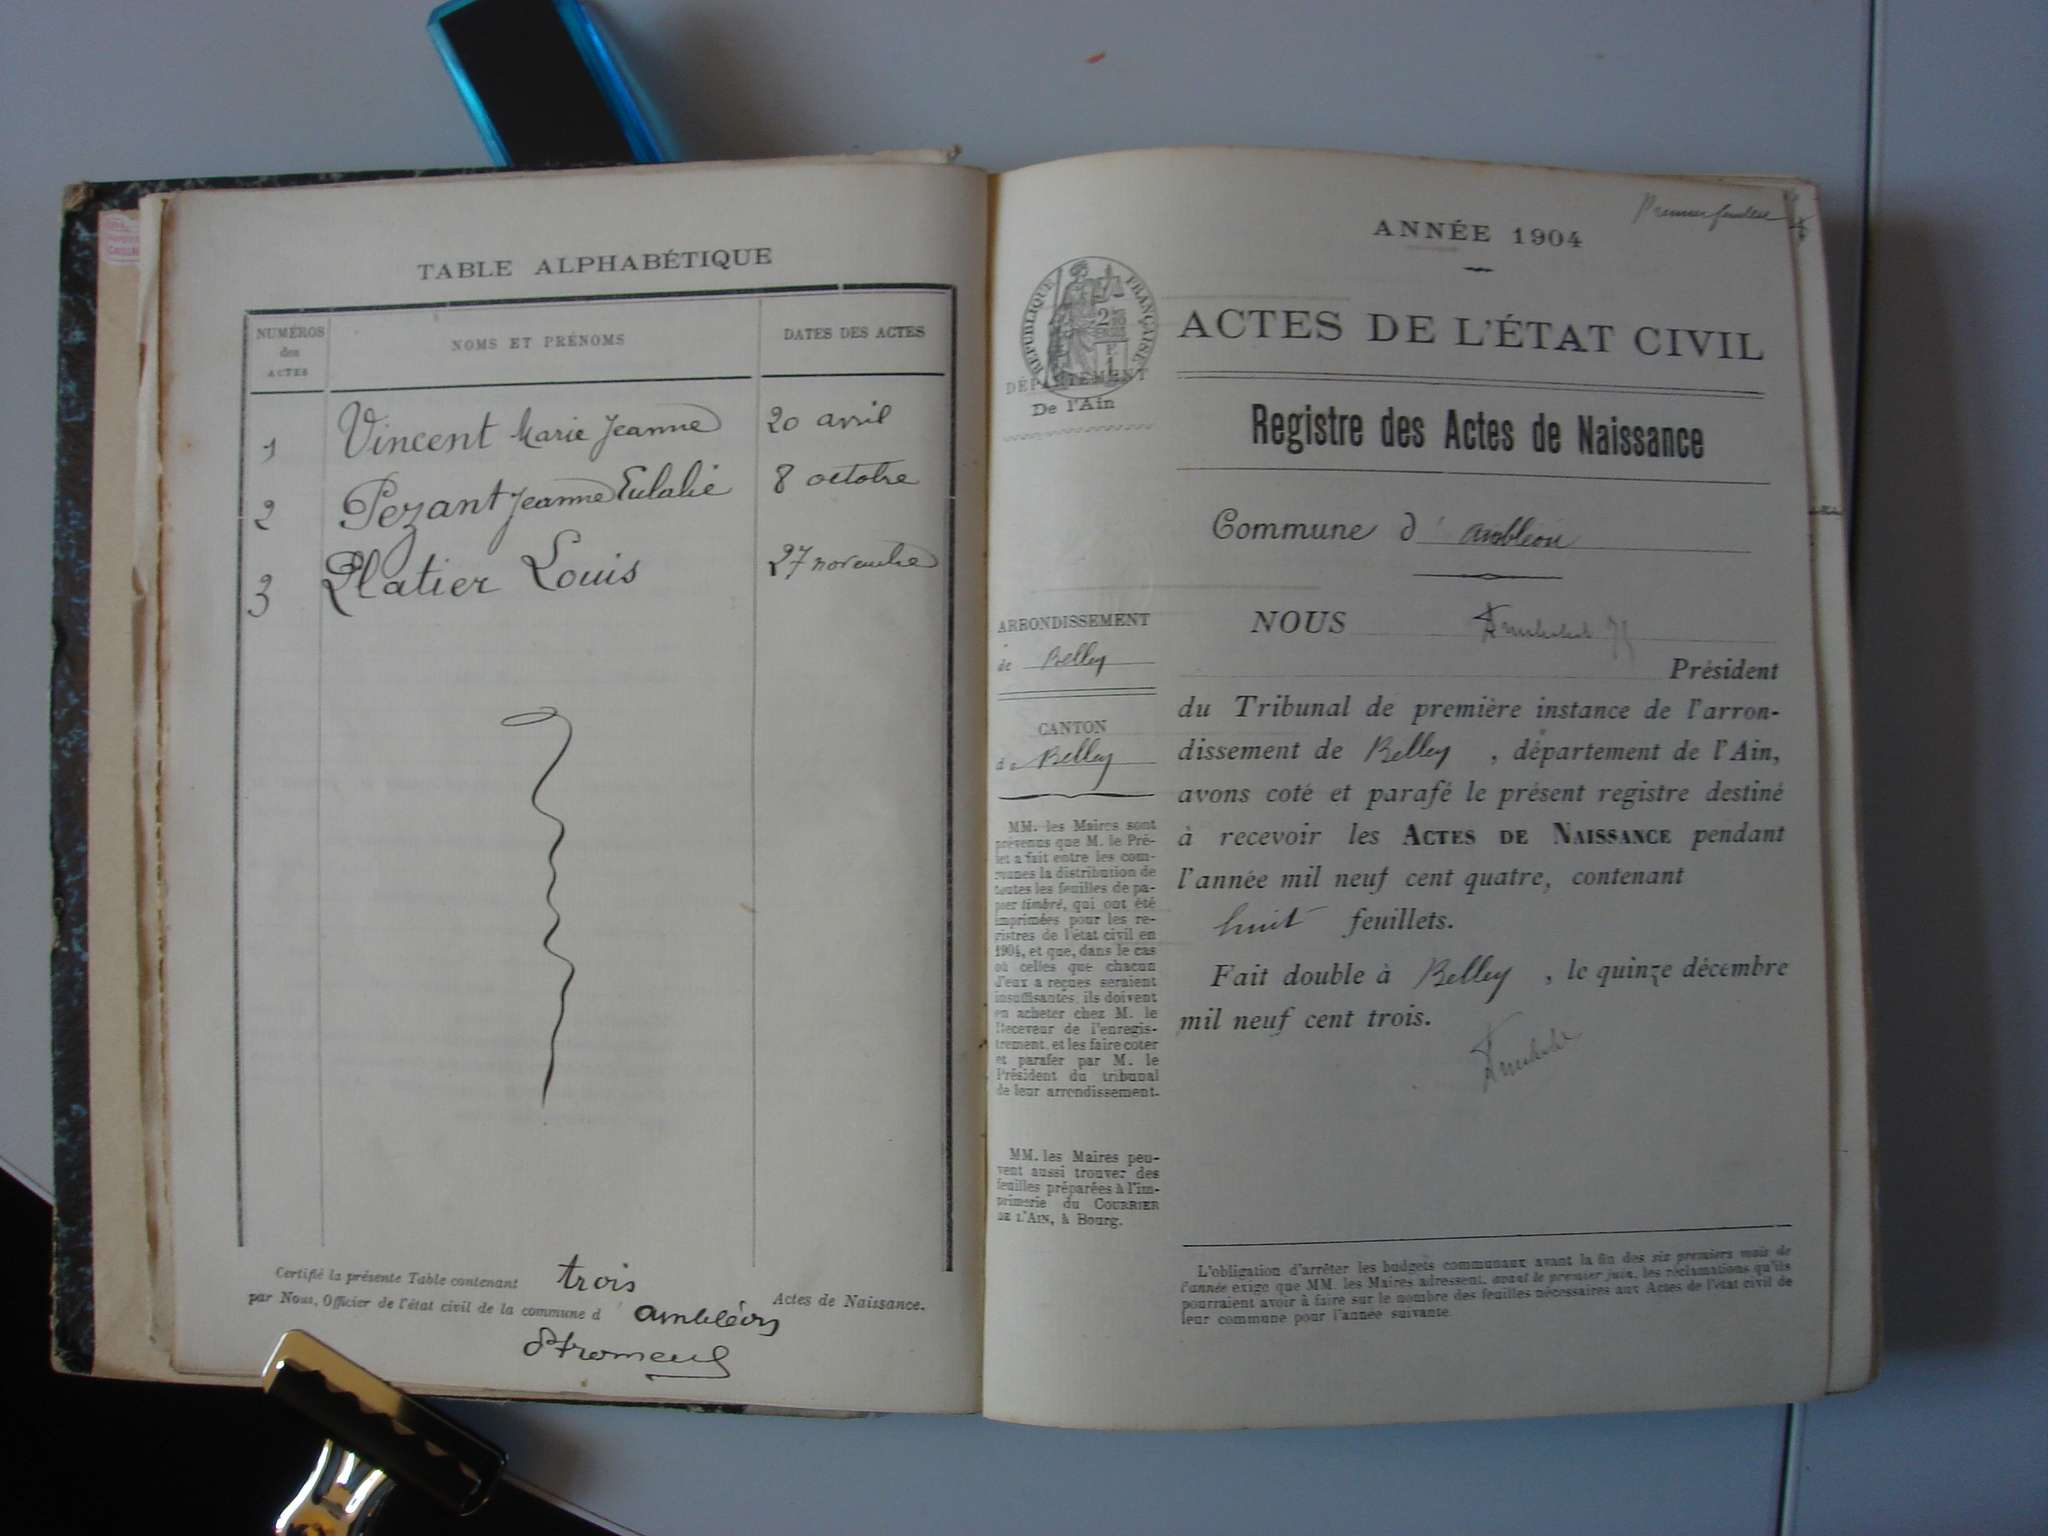 TABLE ALPHABÉTIQUE
NUMÉROS des ACTES
NOMS ET PRÉNOMS
DATES DES ACTES
1 Vincent Marie Jeanne 20 avril
2 Pezant Jeanne Eulalie 8 octobre
3 Platier Louis 27 novembre
Certifié la présente Table contenant trois Actes de Naissance.
par Nous, Officier de l'état civil de la commune d'ambléon
Premier feuillet
ANNÉE 1904
RÉPUBLIQUE FRANÇAISE
ACTES DE L'ÉTAT CIVIL
DÉPARTEMENT
De l'Ain
Registre des Actes de Naissance
Commune d'ambléon
ARRONDISSEMENT
de Belley
CANTON
de Belley
MM. les Maires sont
prévenus que M. le Pré-
fet a fait entre les com-
munes la distribution de
toutes les feuilles de pa-
pier timbré, qui ont été
imprimées pour les re-
gistres de l'état civil en
1904, et que, dans le cas
où celles que chacun
d'eux a reçues seraient
insuffisantes, ils doivent
en acheter chez M. le
Receveur de l'enregis-
trement, et les faire coter
et parafer par M. le
Président du tribunal
de leur arrondissement.
MM. les Maires peu-
vent aussi trouver des
feuilles préparées à l'im-
primerie du COURRIER
DE L'AIN, à Bourg.
NOUS
Président
du Tribunal de première instance de l'arron-
dissement de Belley, département de l'Ain,
avons coté et parafé le présent registre destiné
à recevoir les ACTES DE NAISSANCE pendant
l'année mil neuf cent quatre, contenant
huit feuillets.
Fait double à Belley, le quinze décembre
mil neuf cent trois.
L'obligation d'arrêter les budgets communaux avant la fin des six premiers mois de
l'année exige que MM. les Maires adressent, avant le premier juin, les réclamations qu'ils
pourraient avoir à faire sur le nombre des feuilles nécessaires aux Actes de l'état civil de
leur commune pour l'année suivante.